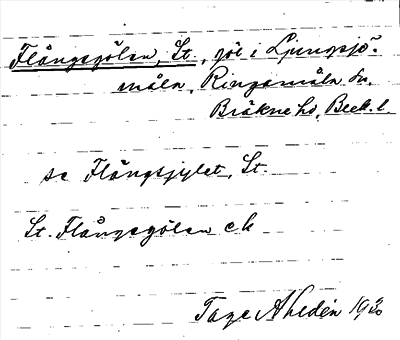 Flångsgölen, St., göl i Ljungsjö-
måla, Ringamåla sn.
Bräkne hd, Blek. l.
se Flångsjylet, St.
St. Flångsgölen ek
Tage Ahldén 193